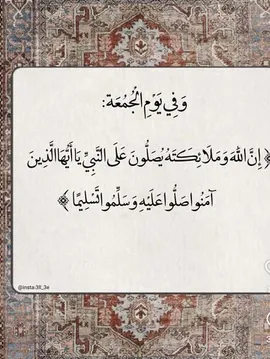 وَفِي يَوْمِ الْجُمْعَة:
﴿ إِنَّ اللهَ وَمَلَائِكَتَهُ يُصَلُّونَ عَلَى النَّبِيِّ يَا أَيُّهَا الَّذِينَ
آمَنُوا صَلُّوا عَلَيْهِ وَسَلِّمُوا تَسْلِيمًا ﴾
@insta:38_3e